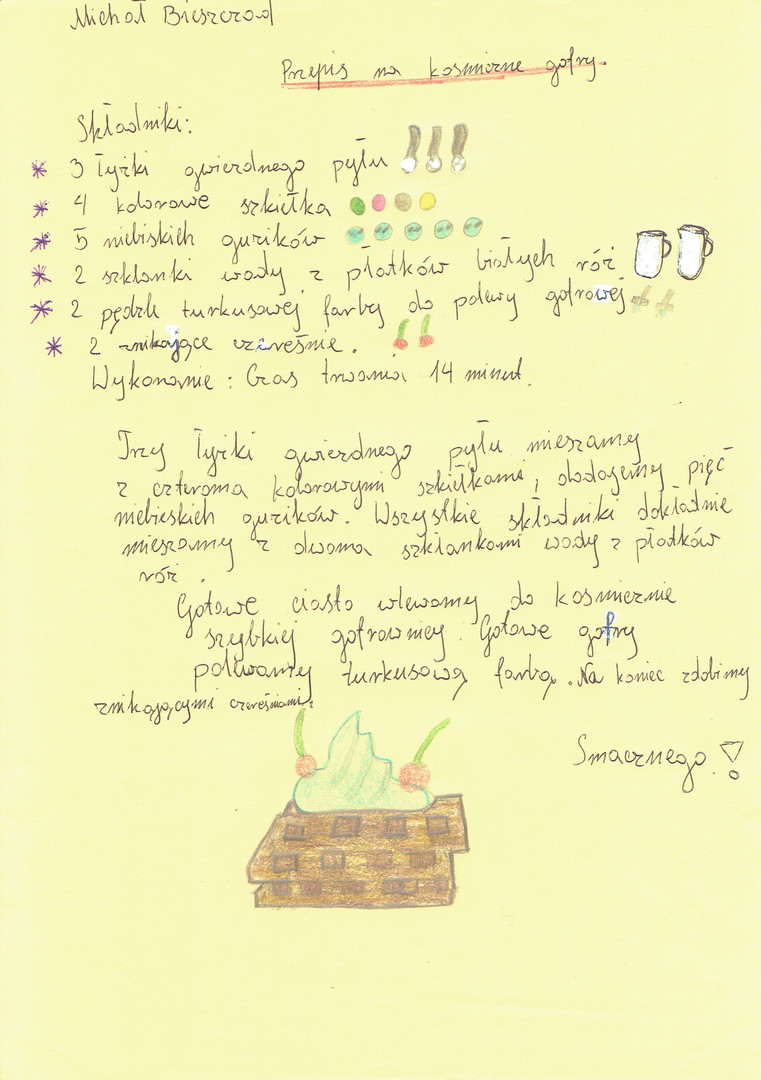 Michał Bieszczad
Przepis na kosmiczne gofry.
Składniki:
* 3 łyżki gwiezdnego pyłu
* 4 kolorowe szkiełka
* 5 niebiskich guzików
* 2 szklanki wody z płatków białych róż
* 2 pędzle turkusowej farby do polewy gofrowej
* 2 znikające czereśnie.
Wykonanie: Czas trwania 14 minut.
Trzy łyżki gwiezdnego pyłu mieszamy
z czteroma kolorowymi szkiełkami, dodajemy pięć
niebieskich guzików. Wszystkie składniki dokładnie
mieszamy z dwoma szklankami wody z płatków
róż.
Gotowe ciasto wlewamy do kosmicznie
szybkiej gofrownicy. Gotowe gofry
polewamy turkusową farbą. Na koniec zdobimy
znikającymi czereśniami.
Smacznego!